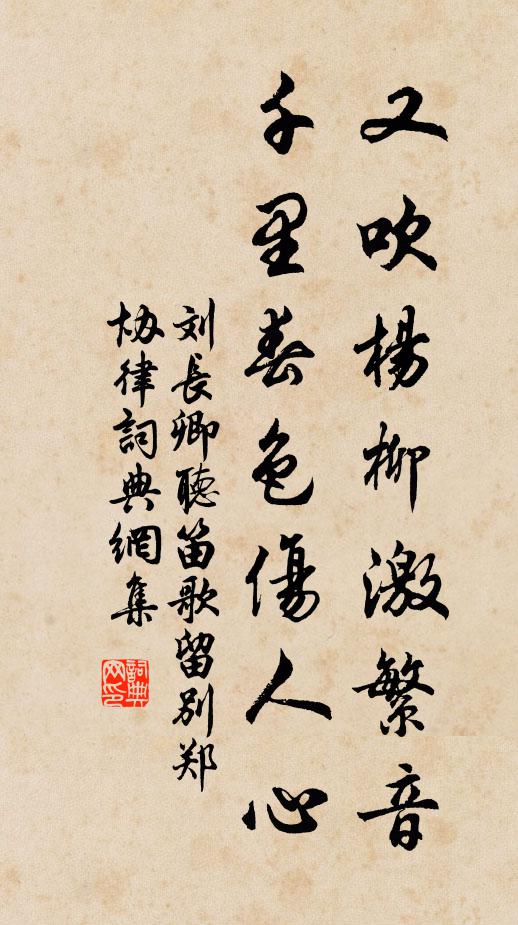 又吹楊柳激繁音
千里春色傷人心
刘長卿聴笛歌留别郑
协律詞典網集
詞典
网印